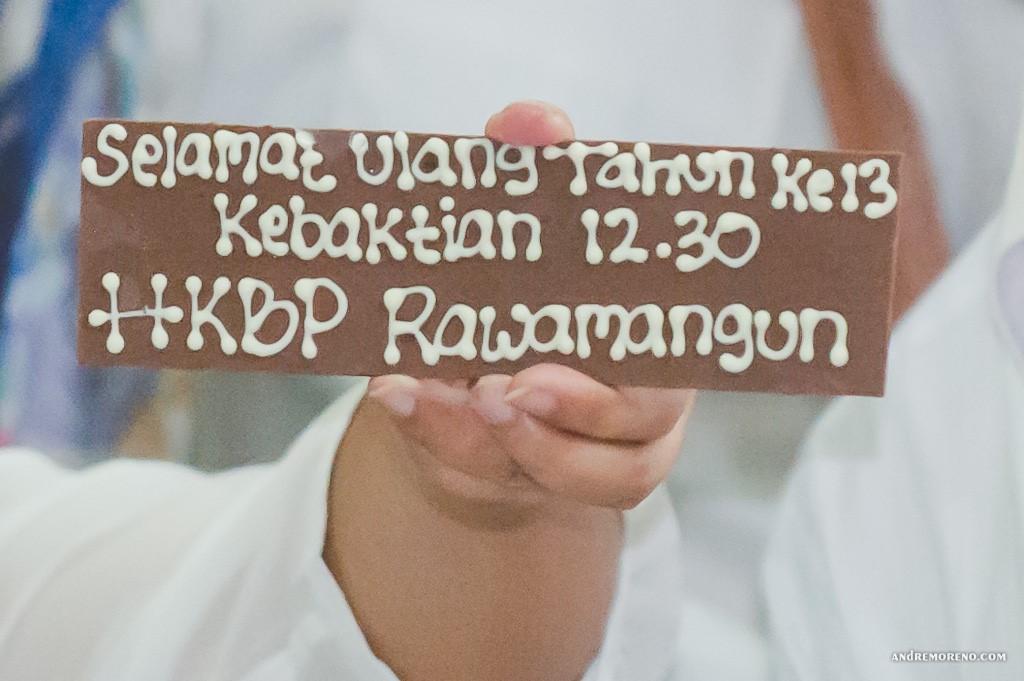 Selamat Ulang Tahun Ke 13
Kebaktian 12.30
HKBP Rawamangun
ANDREMORENO.COM